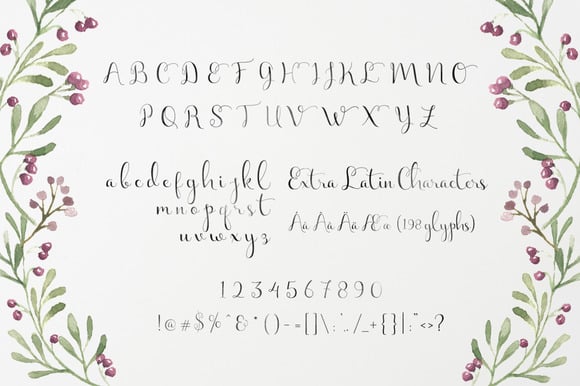 A B C D E F G H I J K L M N O
P Q R S T U V W X Y Z
a b c d e f g h i j k l
m n o p q r s t
u v w x y z
Extra Latin Characters
Àà Áá Ää Ææ (198 glyphs)
1 2 3 4 5 6 7 8 9 0
!@#$%^&*()-=[]\;',./_+{}|:"<>?